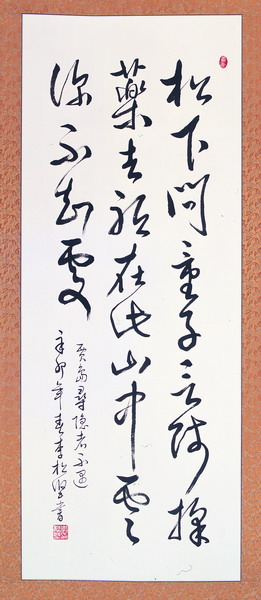 松下問童子言師採
藥去祇在此山中雲
深不知處
賈島尋隱者不遇
辛卯年春李松書